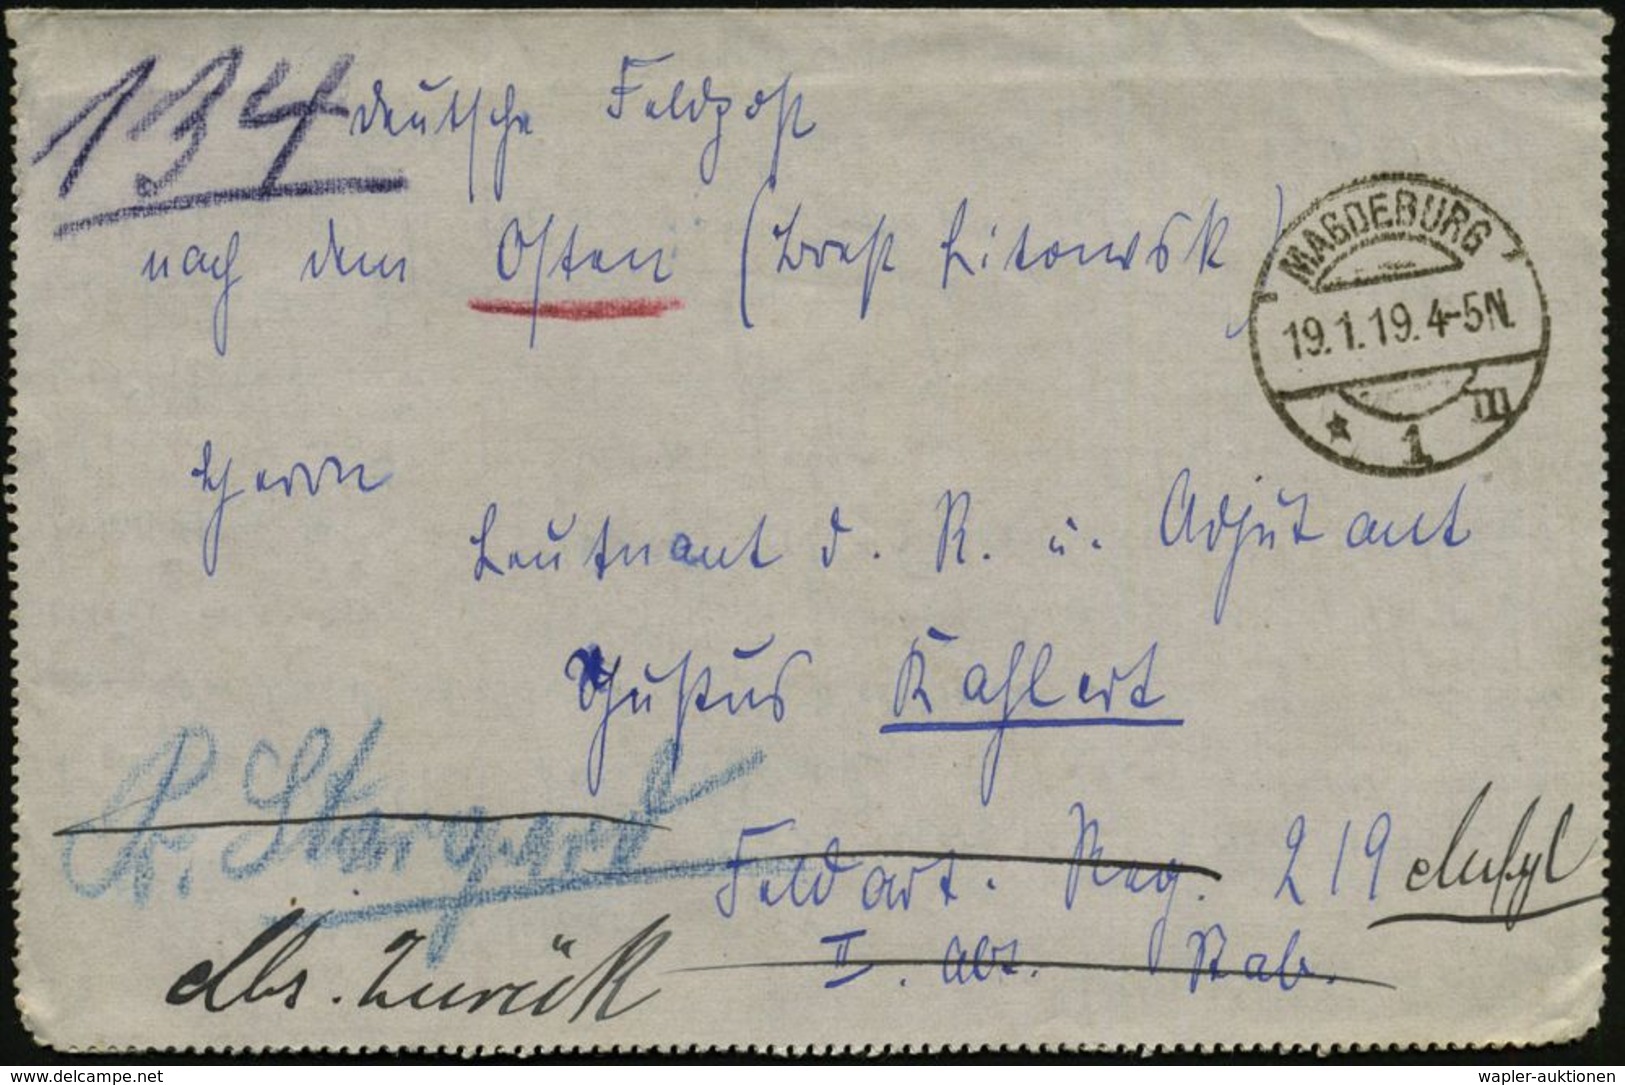 134
deutsche Feldpost
nach dem Osten (Brest Litowsk)
MAGDEBURG
19.1.19.4-5N.
* 1 m
Herrn
Leutnant d. R. u. Adjutant
Justus Kahlert
Pr. Stargard
Feldart. Reg. 219
II. Abt. Stab.
Abs. Zurück
www.delcampe.net
wapler-auktionen